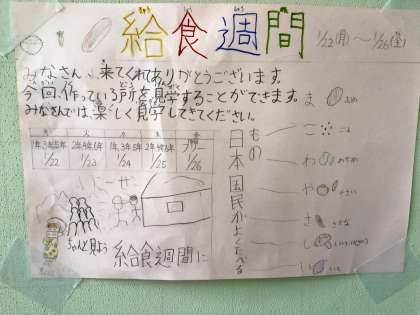 給食週間
1/22(月)～1/26(金)
みなさん、来てくれてありがとうございます。
今回、作っている所を見学することができます。
みなさんでは、楽しく見学してきてください。
月 火 水 木 金
1年3年5年 2年4年6年 1年3年5年 2年4年6年 フリー
1/22 1/23 1/24 1/25 1/26
ちゃんと見よう
給食週間に
日本国民がよくたべるもの
ま まめ
ご ごま
わ わかめ
や やさい
さ さかな
し しいたけ
い いも